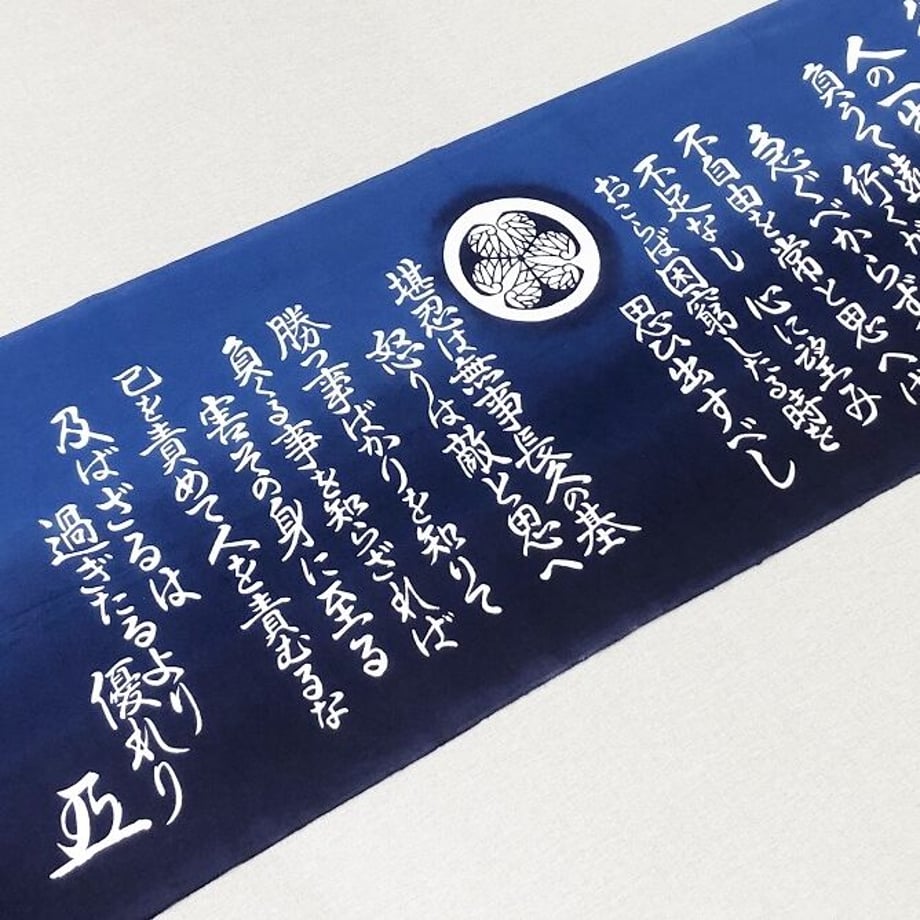 人の一
負うて行くが
急ぐべからず
不自由を常と思へば
不足なし 心に望み
おこらば困窮したる時を
思ひ出すべし
堪忍は無事長久の基
怒りは敵と思へ
勝つ事ばかりを知りて
負くる事を知らざれば
害その身に至る
己を責めて人を責むるな
及ばざるは
過ぎたるより
優れり